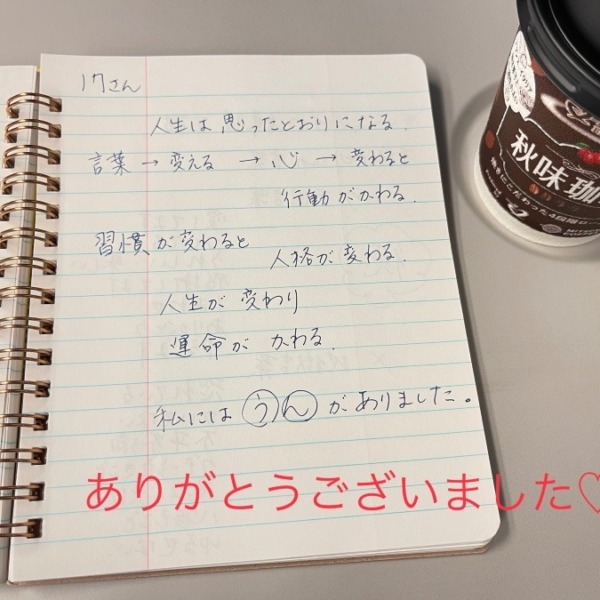 17さん
人生は思ったとおりになる.
言葉 → 変える → 心 → 変わると
行動がかわる.
習慣が変わると
人格が変わる.
人生が変わり
運命がかわる.
私にはうんがありました。
ありがとうございました♡
秋味珈